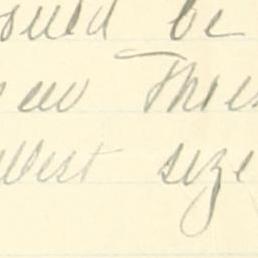 ould be
ew Thes
llest size